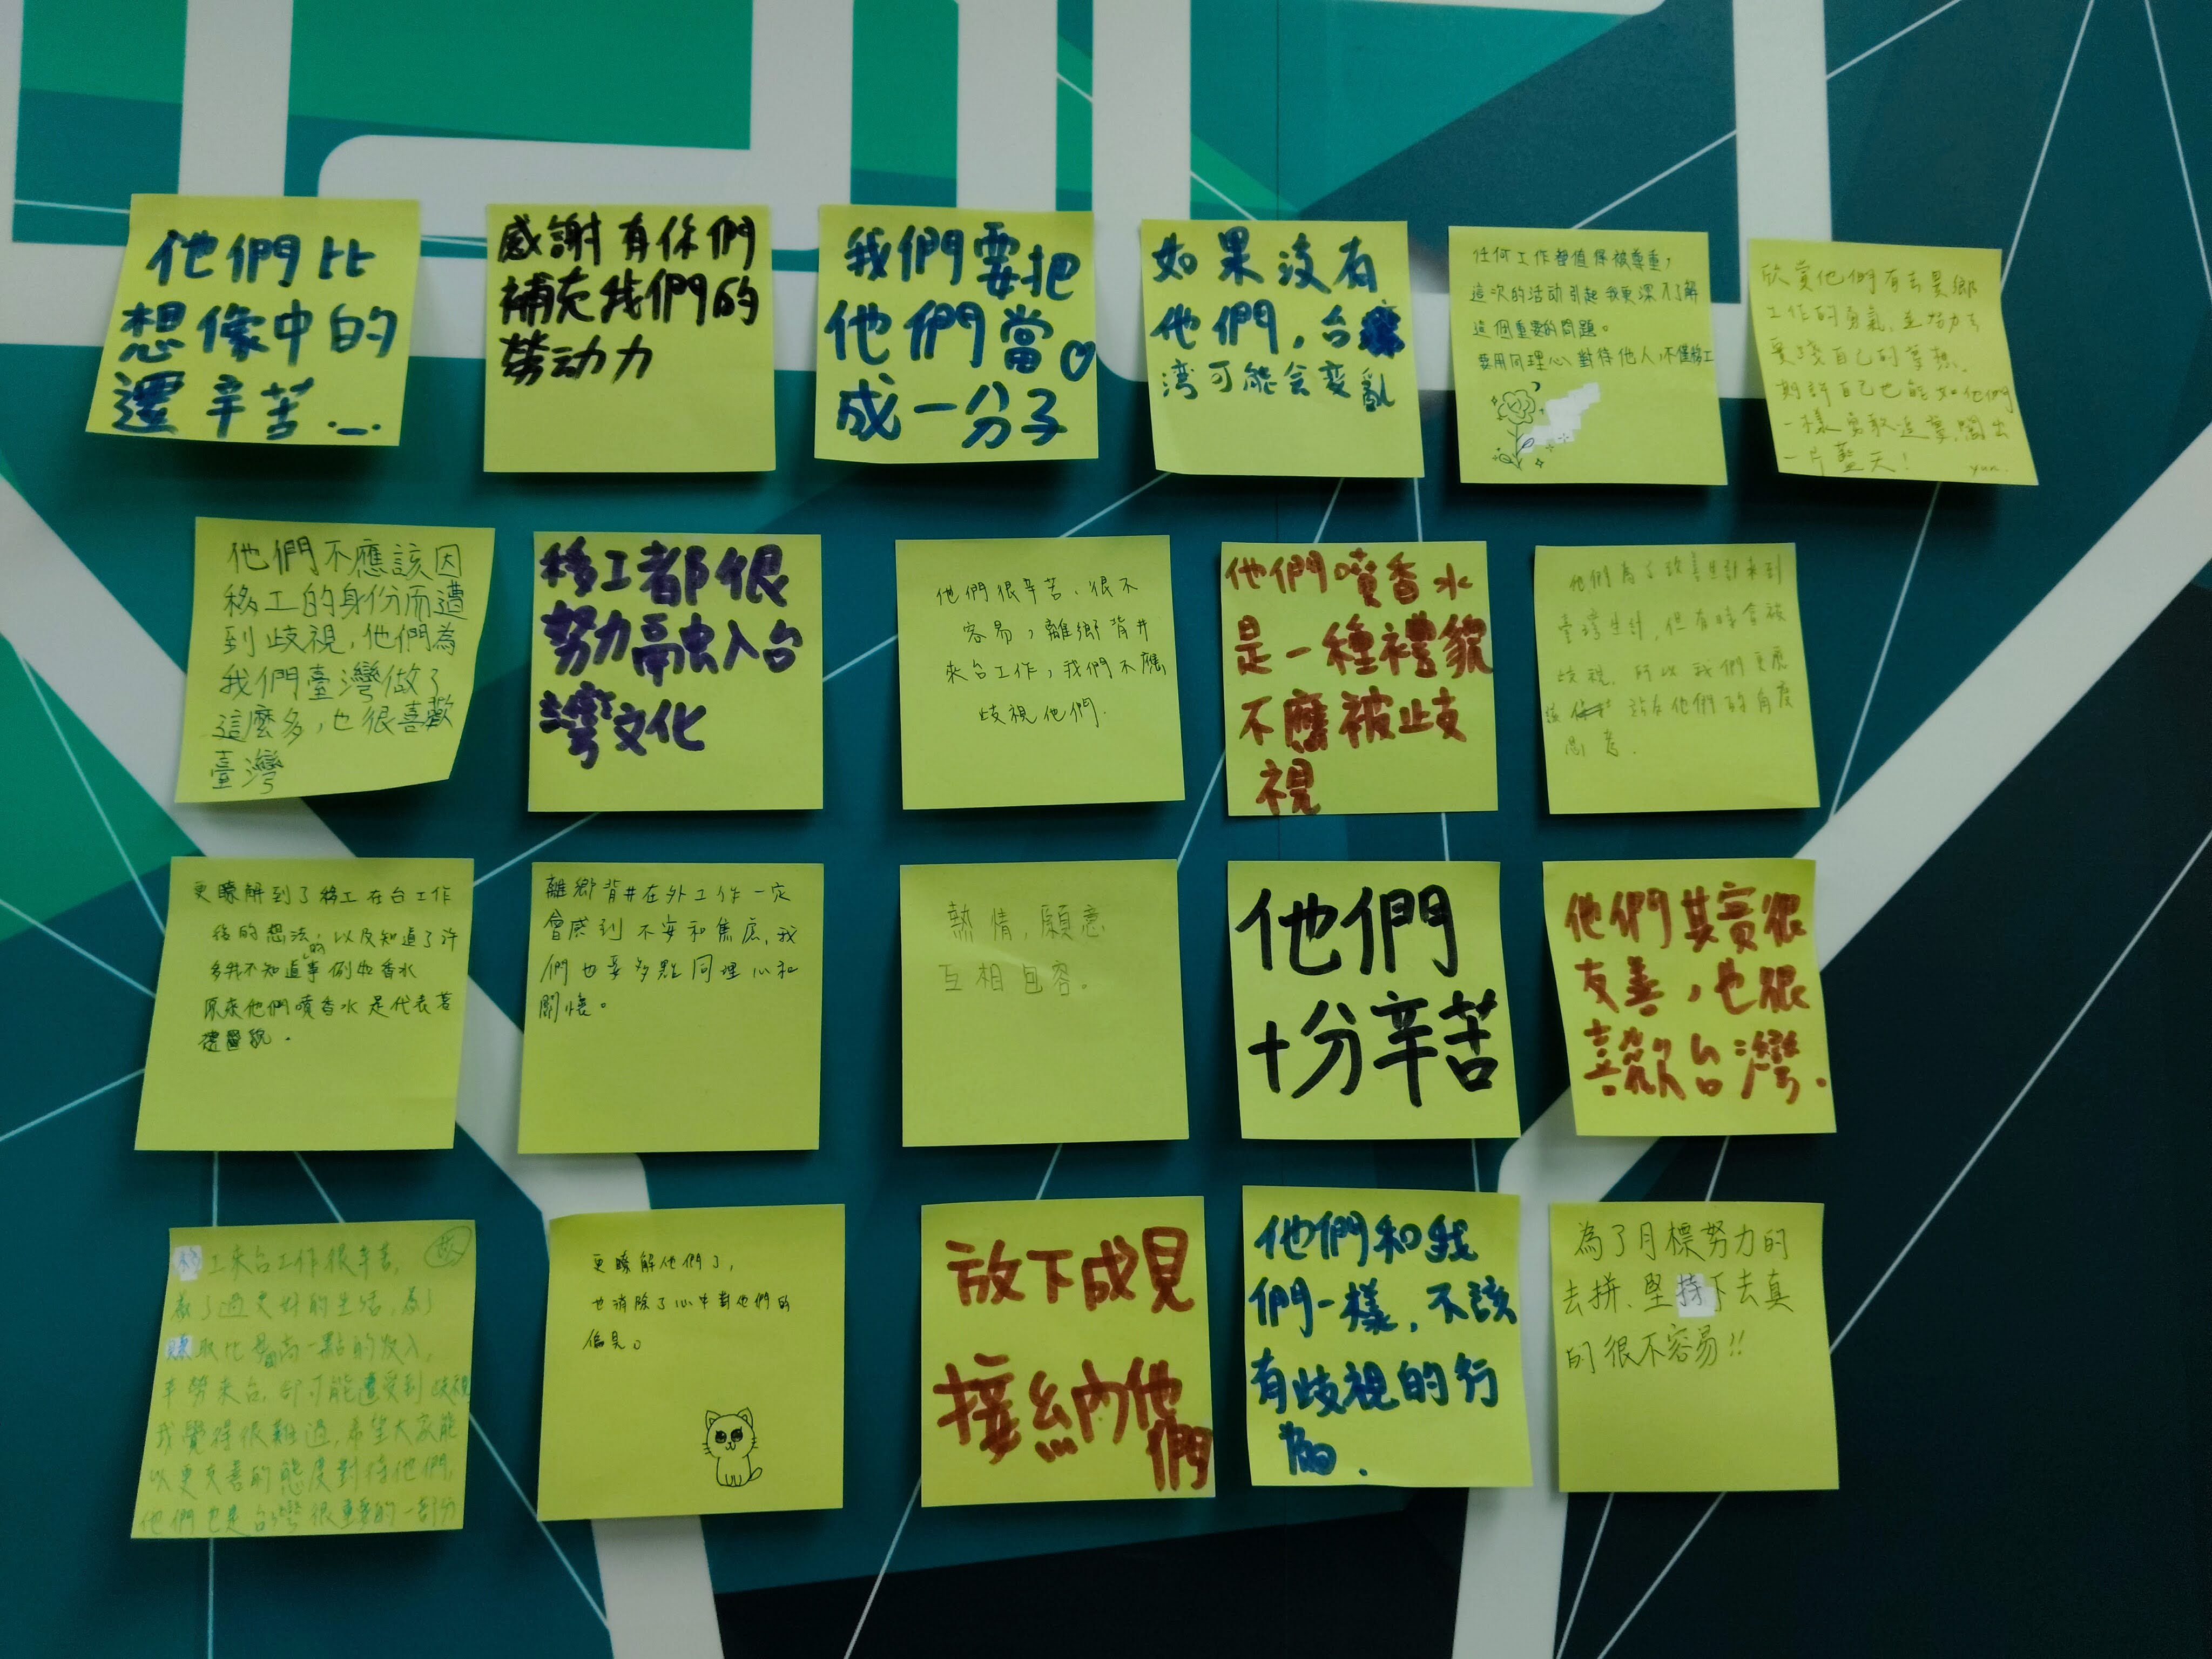 他們比
想像中的
還辛苦...
感謝有你們
補充我們的
勞动力
我們要把
他們當
成一分子
如果沒有
他們，台
湾可能会变亂
任何工作都值得被尊重，
這次的活動引起我更深入了解
這個重要的問題。
要用同理心對待他人，不僅移工
欣賞他們有去異鄉
工作的勇氣，並努力去
實踐自己的夢想。
期許自己也能如他們
一樣勇敢追夢，闖出
一片藍天！
yun.
他們不應該因
移工的身份而遭
到歧視，他們為
我們臺灣做了
這麼多，也很喜歡
臺灣
移工都很
努力融入台
灣文化
他們很辛苦、很不
容易，離鄉背井
來台工作，我們不應
歧視他們.
他們噴香水
是一種禮貌
不應被歧
視
他們為了改善生計來到
臺灣生計，但有時會被
歧視，所以我們更應
該 站在他們的角度
思考.
更瞭解到了移工在台工作
後的想法，以及知道了許
多我不知道的事 例如香水
原來他們噴香水是代表著
禮貌.
離鄉背井在外工作一定
會感到不安和焦慮，我
們也要多點同理心和
關懷。
熱情，願意
互相包容。
他們
十分辛苦
他們其實很
友善，也很
喜歡台灣.
移工來台工作很辛苦，
為了過更好的生活，為了
賺取比 高一點的收入，
辛勞來台，卻可能遭受到歧視
我覺得很難過，希望大家能
以更友善的態度對待他們，
他們也是台灣很重要的一部分
更瞭解他們了，
也消除了心中對他們的
偏見。
放下成見
接納他們
他們和我
們一樣，不該
有歧視的行
為.
為了目標努力的
去拼、堅持下去真
的很不容易!!